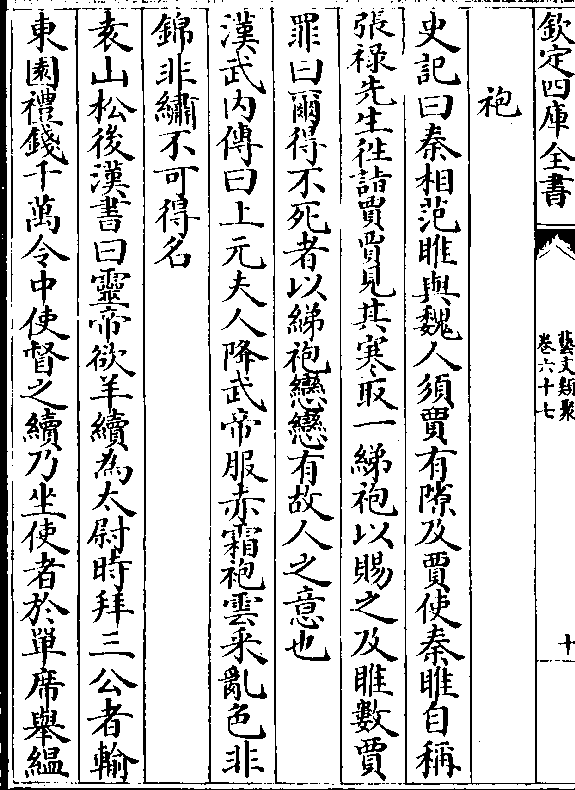 欽定四庫全書
藝文類聚
卷六十七
十
袍
史記曰秦相范睢與魏人須賈有隙及賈使秦睢自稱
張禄先生徃詣賈賈見其寒取一綈袍以賜之及睢數賈
罪曰爾得不死者以綈袍戀戀有故人之意也
漢武内傳曰上元夫人降武帝服赤霜袍雲采亂色非
錦非繡不可得名
袁山松後漢書曰靈帝欲羊續為太尉時拜三公者輸
東園禮錢千萬令中使督之續乃坐使者於單席舉緼